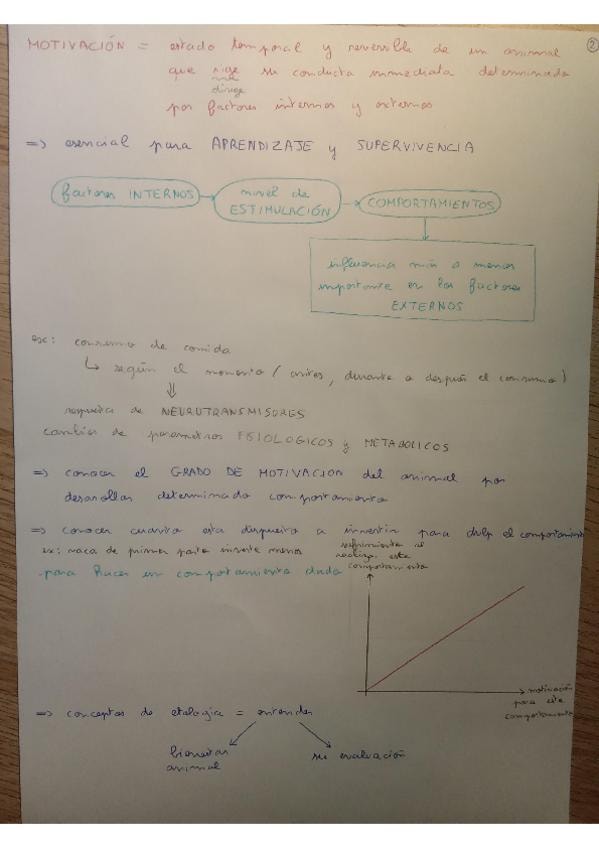 2
MOTIVACIÓN = estado temporal y reversible de un animal
que rige su conducta inmediata determinada
dirige
por factores internos y externos
=> esencial para APRENDIZAJE y SUPERVIVENCIA
factores INTERNOS → nivel de → COMPORTAMIENTOS
ESTIMULACIÓN
influencia más o menos
importante en los factores
EXTERNOS
ex: consumo de comida
↳ según el momento (antes, durante o después el consumo)
⇓
respuesta de NEUROTRANSMISORES
cambios de parametros FISIOLOGICOS y METABOLICOS
=> conocer el GRADO DE MOTIVACION del animal por
desarollar determinado comportamiento
=> conocer cuanto esta dispuesto a invertir para el comportamiento
ex: vaca de primer parto invierte menos
para hacer un comportamiento dado
al
realizar este
comportamiento
→ motivación
para este
comportamiento
=> conceptos de etologia = entender
bienestar
animal
su evaluación